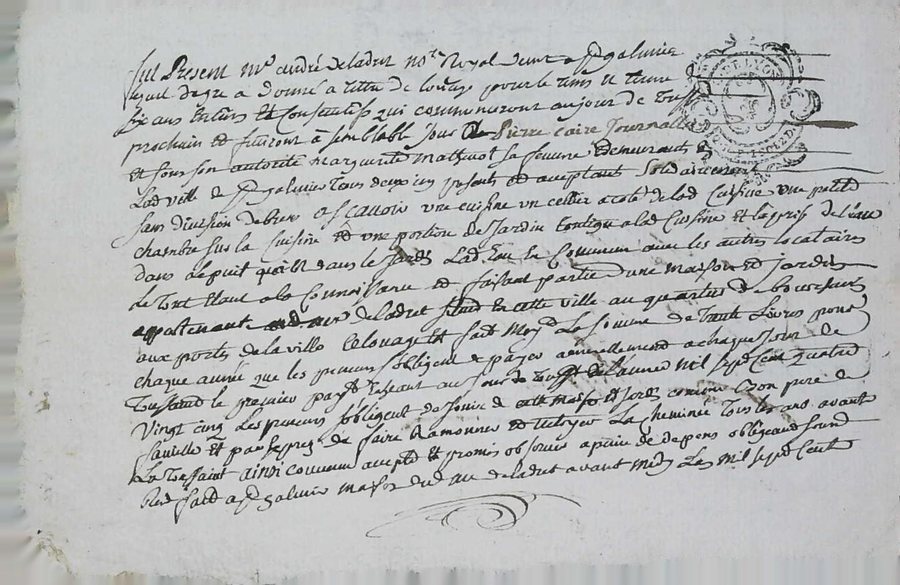 fut Present Mre andré deladret not. Royal de st galmier
lequel de gre a donné a titre de louage pour le tems et terme
six ans entiers et consecutifs qui commenceront au jour de Touss
prochain et finiront à semblable jour a Pierre caire Journallier
et sous son autorité marguerite mathevot sa femme demeurants
Lad ville de st galmier tous deux icy presents et acceptants solidairement
sans division de biens ascavoir une cuisine un cellier a coté de lad Cuisine une petite
chambre sur la Cuisine et une portion de Jardin contigue a lad Cuisine et la prise de l'eau
dans le puit qui est dans le Jardin Lad eau en Commun avec les autres locataires
le tout etant a la Connoissance et faisant partie d'une maison et jardin
appartenant deladret situé en cette ville au quartier
aux portes de la ville Ce louage est fait moyt La somme de trente Livres pour
chaque année que les preneurs s'obligent de payer annuellement a chaque jour de
Toussaint le premier payt echeant au jour de Touss de l'année mil sept Cent quatre
Vingt cinq Les preneurs s'obligent de jouir de cette maison et jardin comme un bon pere de
famille et par exprès de faire Ramonner et netoyer La cheminée Tous les ans avant
La Toussaint ainsi convenu accepté et promis observer a peine de depens obligeand
fait a st galmier maison dud Mre deladret avant midy Les mil sept Cent
ST LYON